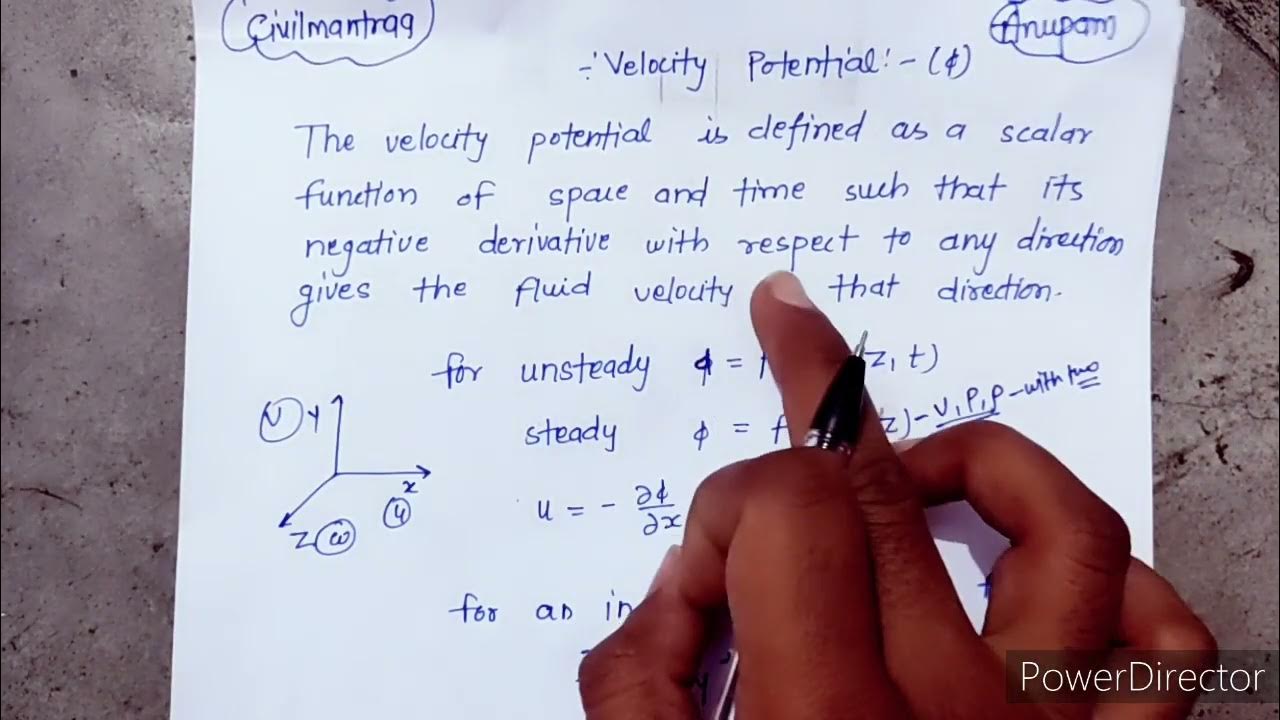 Civilmantraa
Anupam
÷ Velocity Potential:- (ϕ)
The velocity potential is defined as a scalar
function of space and time such that its
negative derivative with respect to any direction
gives the fluid velocity that direction.
for unsteady ϕ = z, t)
steady ϕ = f z) - V, P, ρ - with
V Y
x
u
Z ω
u = - ∂ϕ/∂x
for an in
PowerDirector